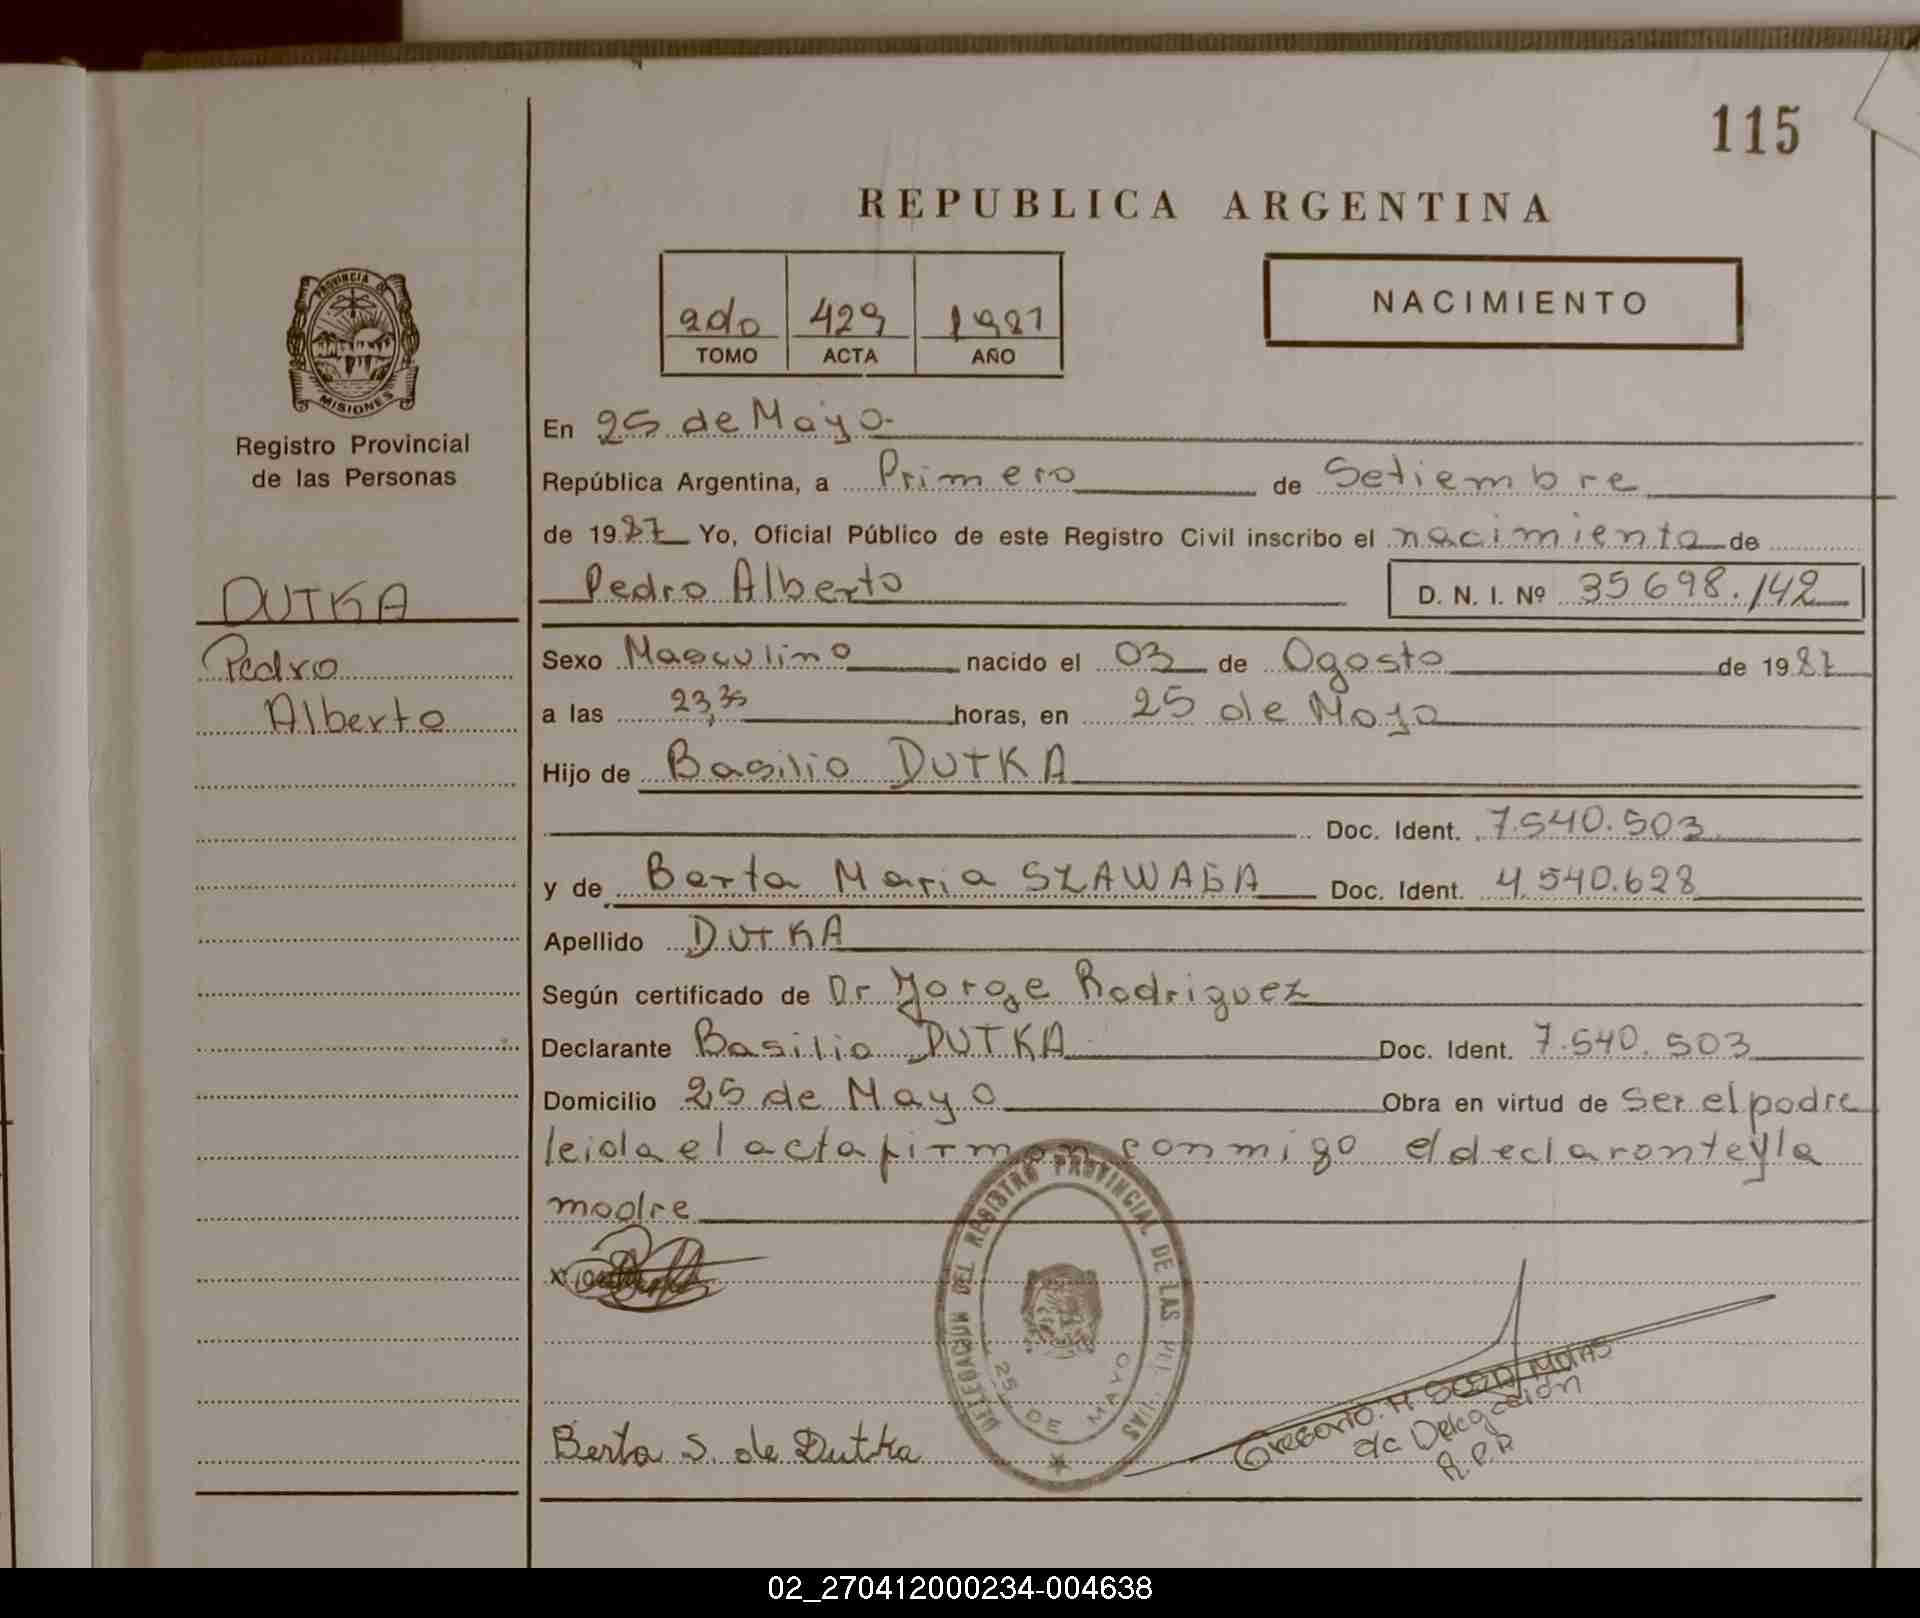 115
REPUBLICA ARGENTINA
2do 429 1987
TOMO ACTA AÑO
NACIMIENTO
PROVINCIA DE
MISIONES
Registro Provincial
de las Personas
DUTKA
Pedro
Alberto
En 25 de Mayo
República Argentina, a Primero de Setiembre
de 1987 Yo, Oficial Público de este Registro Civil inscribo el nacimiento de
Pedro Alberto D. N. I. Nº 35698.142
Sexo Masculino nacido el 03 de Agosto de 1987
a las 23,35 horas, en 25 de Mayo
Hijo de Basilio DUTKA
Doc. Ident. 7.540.503
y de Berta Maria Doc. Ident. 4.540.628
Apellido DUTKA
Según certificado de Dr Jorge Rodriguez
Declarante Basilio DUTKA Doc. Ident. 7.540.503
Domicilio 25 de Mayo Obra en virtud de Ser el padre
leida el acta firman conmigo el declarante y la
madre
DELEGACION DEL REGISTRO PROVINCIAL DE LAS
25 DE MAYO
Berta S. de Dutka
Gregorio. H.
a/c Delegación
R.P.P
02_270412000234-004638